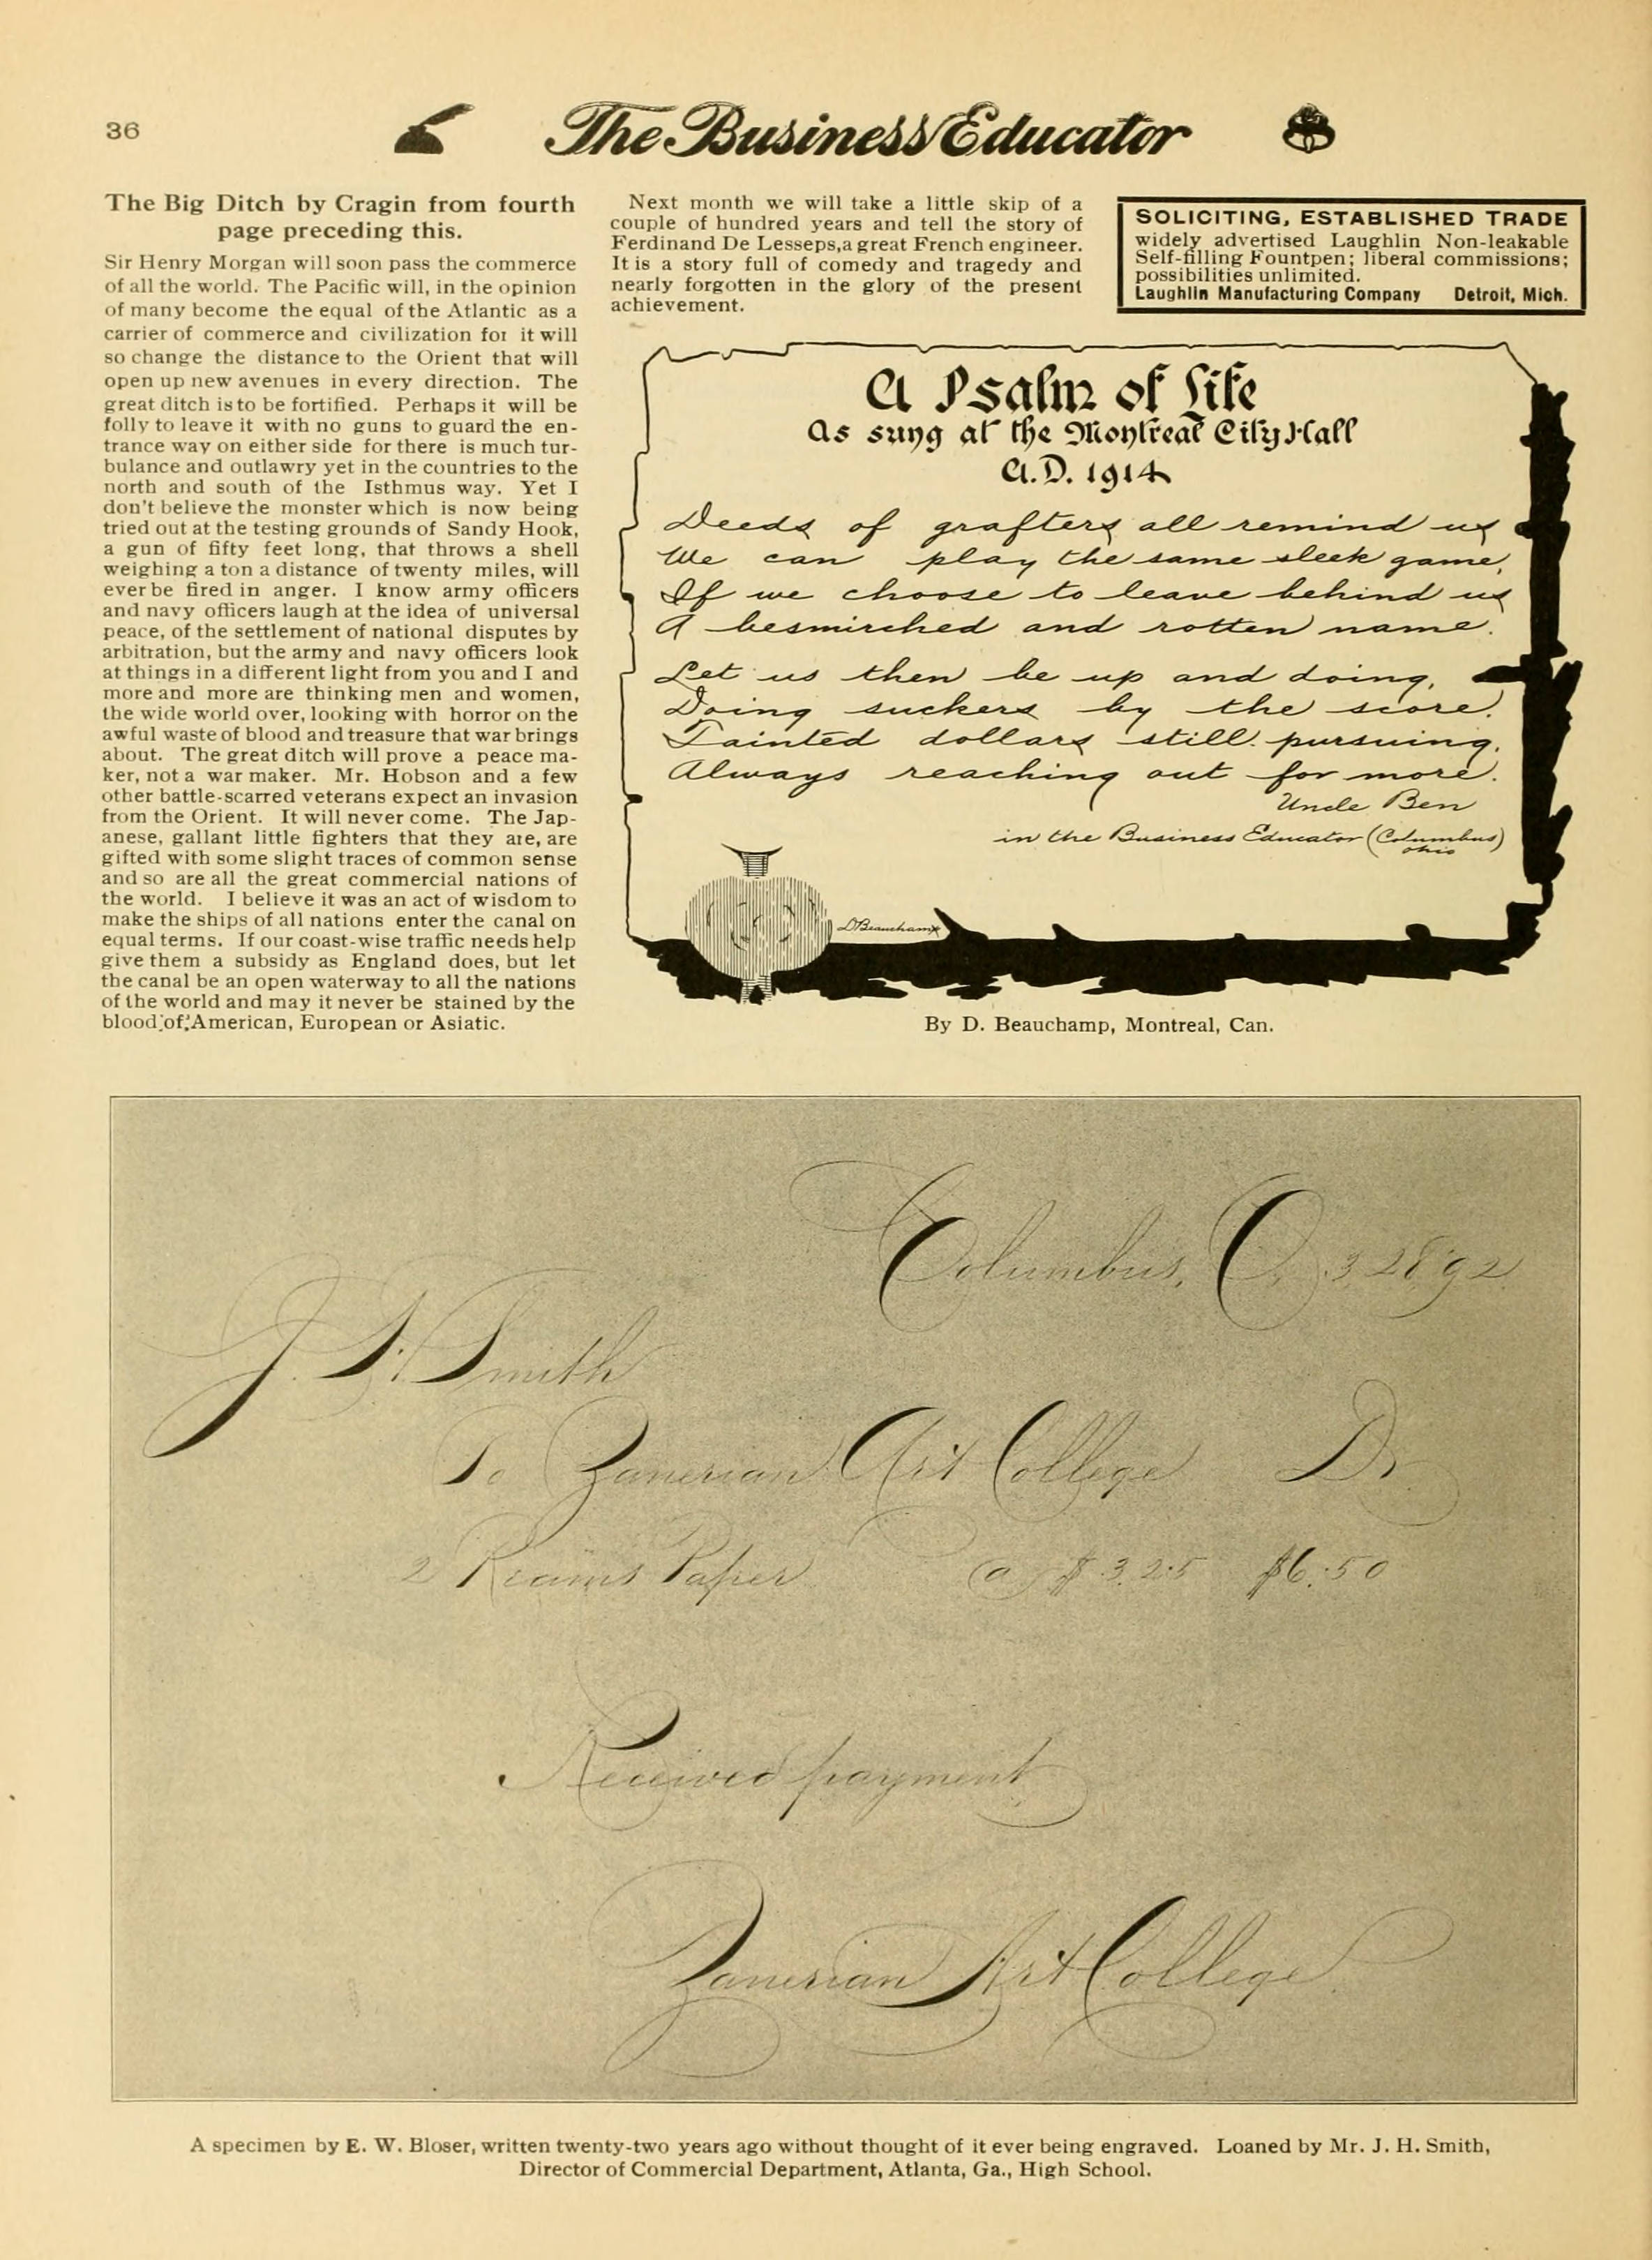 36
The Business Educator
The Big Ditch by Cragin from fourth
page preceding this.
Sir Henry Morgan will soon pass the commerce
of all the world. The Pacific will, in the opinion
of many become the equal of the Atlantic as a
carrier of commerce and civilization for it will
so change the distance to the Orient that will
open up new avenues in every direction. The
great ditch is to be fortified. Perhaps it will be
folly to leave it with no guns to guard the en-
trance way on either side for there is much tur-
bulance and outlawry yet in the countries to the
north and south of the Isthmus way. Yet I
don't believe the monster which is now being
tried out at the testing grounds of Sandy Hook,
a gun of fifty feet long, that throws a shell
weighing a ton a distance of twenty miles, will
ever be fired in anger. I know army officers
and navy officers laugh at the idea of universal
peace, of the settlement of national disputes by
arbitration, but the army and navy officers look
at things in a different light from you and I and
more and more are thinking men and women,
the wide world over, looking with horror on the
awful waste of blood and treasure that war brings
about. The great ditch will prove a peace ma-
ker, not a war maker. Mr. Hobson and a few
other battle-scarred veterans expect an invasion
from the Orient. It will never come. The Jap-
anese, gallant little fighters that they are, are
gifted with some slight traces of common sense
and so are all the great commercial nations of
the world. I believe it was an act of wisdom to
make the ships of all nations enter the canal on
equal terms. If our coast-wise traffic needs help
give them a subsidy as England does, but let
the canal be an open waterway to all the nations
of the world and may it never be stained by the
blood of American, European or Asiatic.
Next month we will take a little skip of a
couple of hundred years and tell the story of
Ferdinand De Lesseps, a great French engineer.
It is a story full of comedy and tragedy and
nearly forgotten in the glory of the present
achievement.
SOLICITING, ESTABLISHED TRADE
widely advertised Laughlin Non-leakable
Self-filling Fountpen; liberal commissions;
possibilities unlimited.
Laughlin Manufacturing Company Detroit, Mich.
A Psalm of Life
As sung at the Montreal City Hall
A.D. 1914
Deeds of grafters all remind us
We can play the same sleek game,
If we choose to leave behind us
A besmirched and rotten name.
Let us then be up and doing,
Doing suckers by the score.
Tainted dollars still pursuing,
Always reaching out for more.
Uncle Ben
in the Business Educator (Columbus)
Ohio
D Beauchamp
By D. Beauchamp, Montreal, Can.
Columbus, O., 3 28 '92
J. H. Smith
To Zanerian Art College Dr.
2 Reams Paper @ $3.25 $6.50
Received payment
Zanerian Art College
A specimen by E. W. Bloser, written twenty-two years ago without thought of it ever being engraved. Loaned by Mr. J. H. Smith,
Director of Commercial Department, Atlanta, Ga., High School.